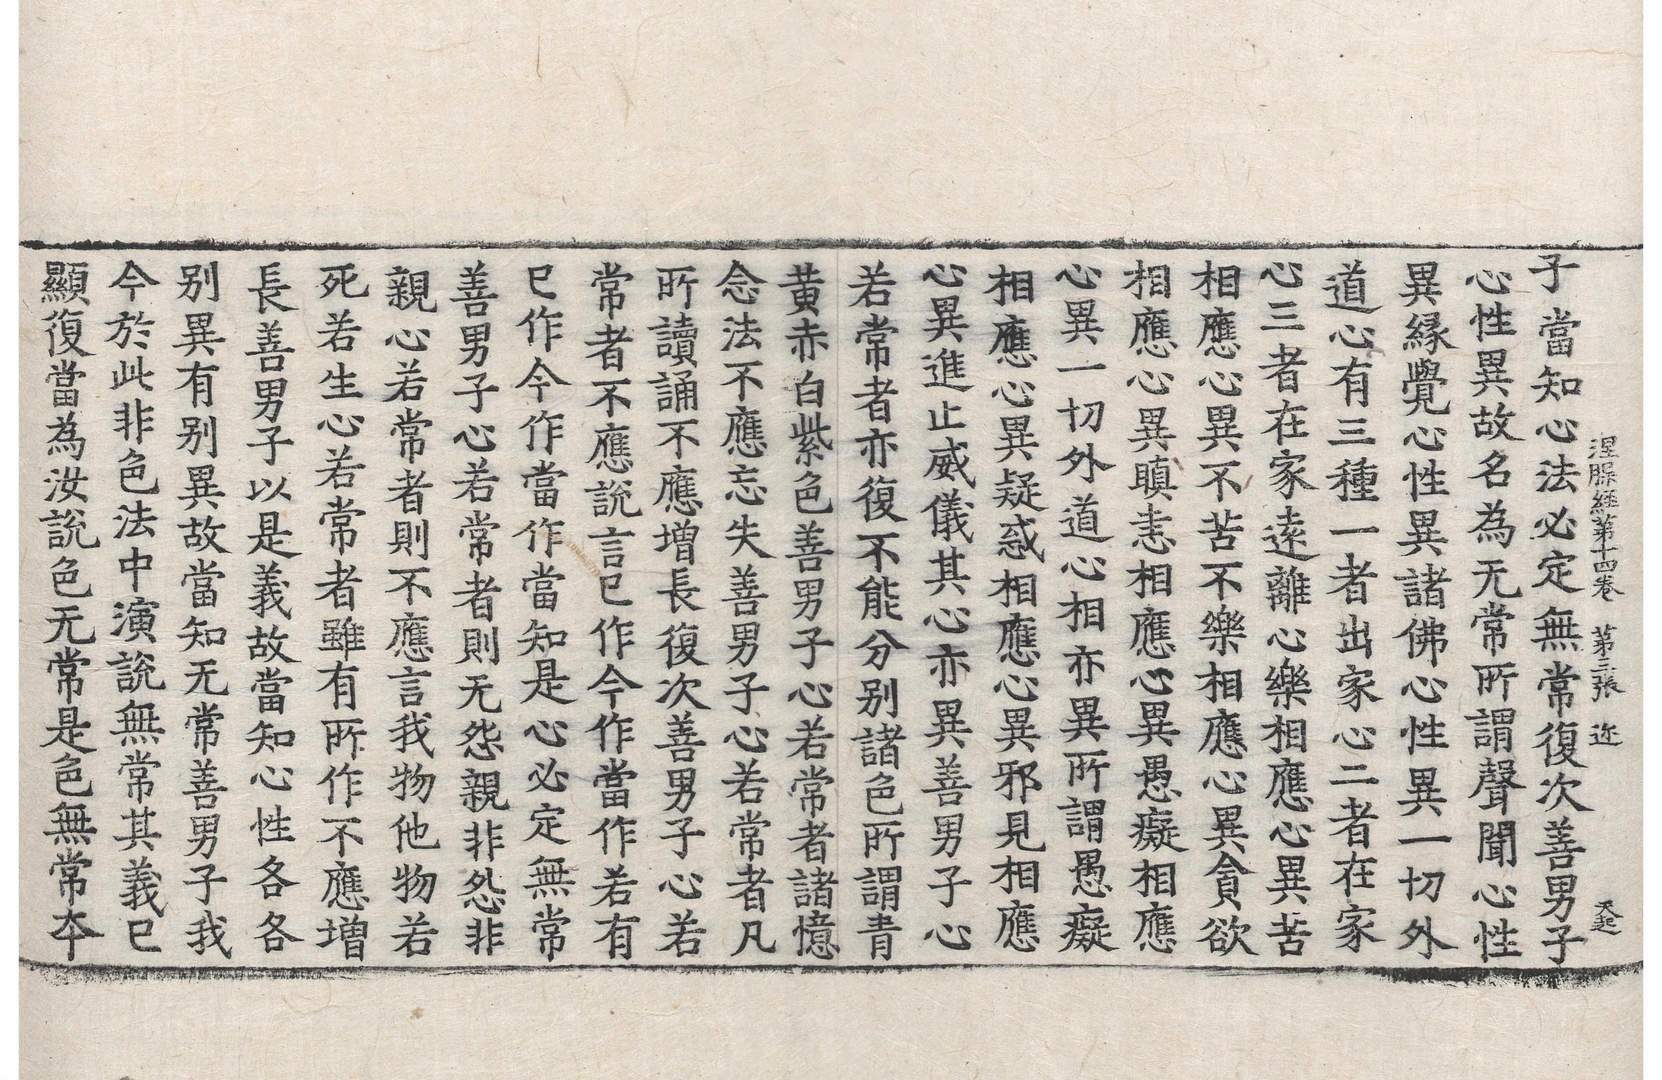 涅槃経第十四卷 第三張 迩 天起
子當知心法必定無常復次善男子
心性異故名為无常所謂聲聞心性
異緣覺心性異諸佛心性異一切外
道心有三種一者出家心二者在家
心三者在家遠離心樂相應心異苦
相應心異不苦不樂相應心異貪欲
相應心異瞋恚相應心異愚癡相應
心異一切外道心相亦異所謂愚癡
相應心異疑惑相應心異邪見相應
心異進止威儀其心亦異善男子心
若常者亦復不能分別諸色所謂青
黃赤白紫色善男子心若常者諸憶
念法不應忘失善男子心若常者凡
所讀誦不應增長復次善男子心若
常者不應說言已作今作當作若有
已作今作當作當知是心必定無常
善男子心若常者則无怨親非怨非
親心若常者則不應言我物他物若
死若生心若常者雖有所作不應增
長善男子以是義故當知心性各各
別異有別異故當知无常善男子我
今於此非色法中演說無常其義已
顯復當為汝說色无常是色無常夲